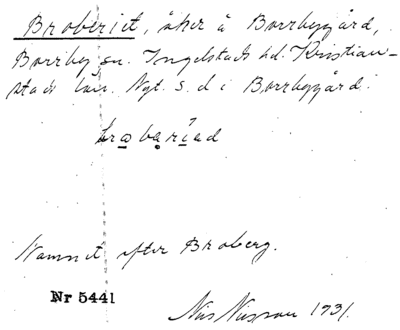 Broberiet, åker å Borrbygård,
Borrby sn. Ingelstads hd. Kristian-
stads län. Nyt. s. d. i Borrbygård.
brobäriad
Namnet efter Broberg.
Nr 5441
Nils 1931.